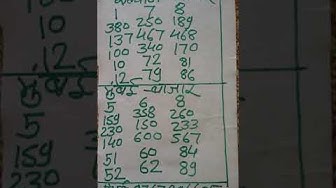 1 7 8
380 250 189
137 467 468
100 340 170
10 72 81
12 79 86
मुंबई बाजार
5 6 8
159 358 260
230 150 233
140 600 567
51 60 84
52 62 89